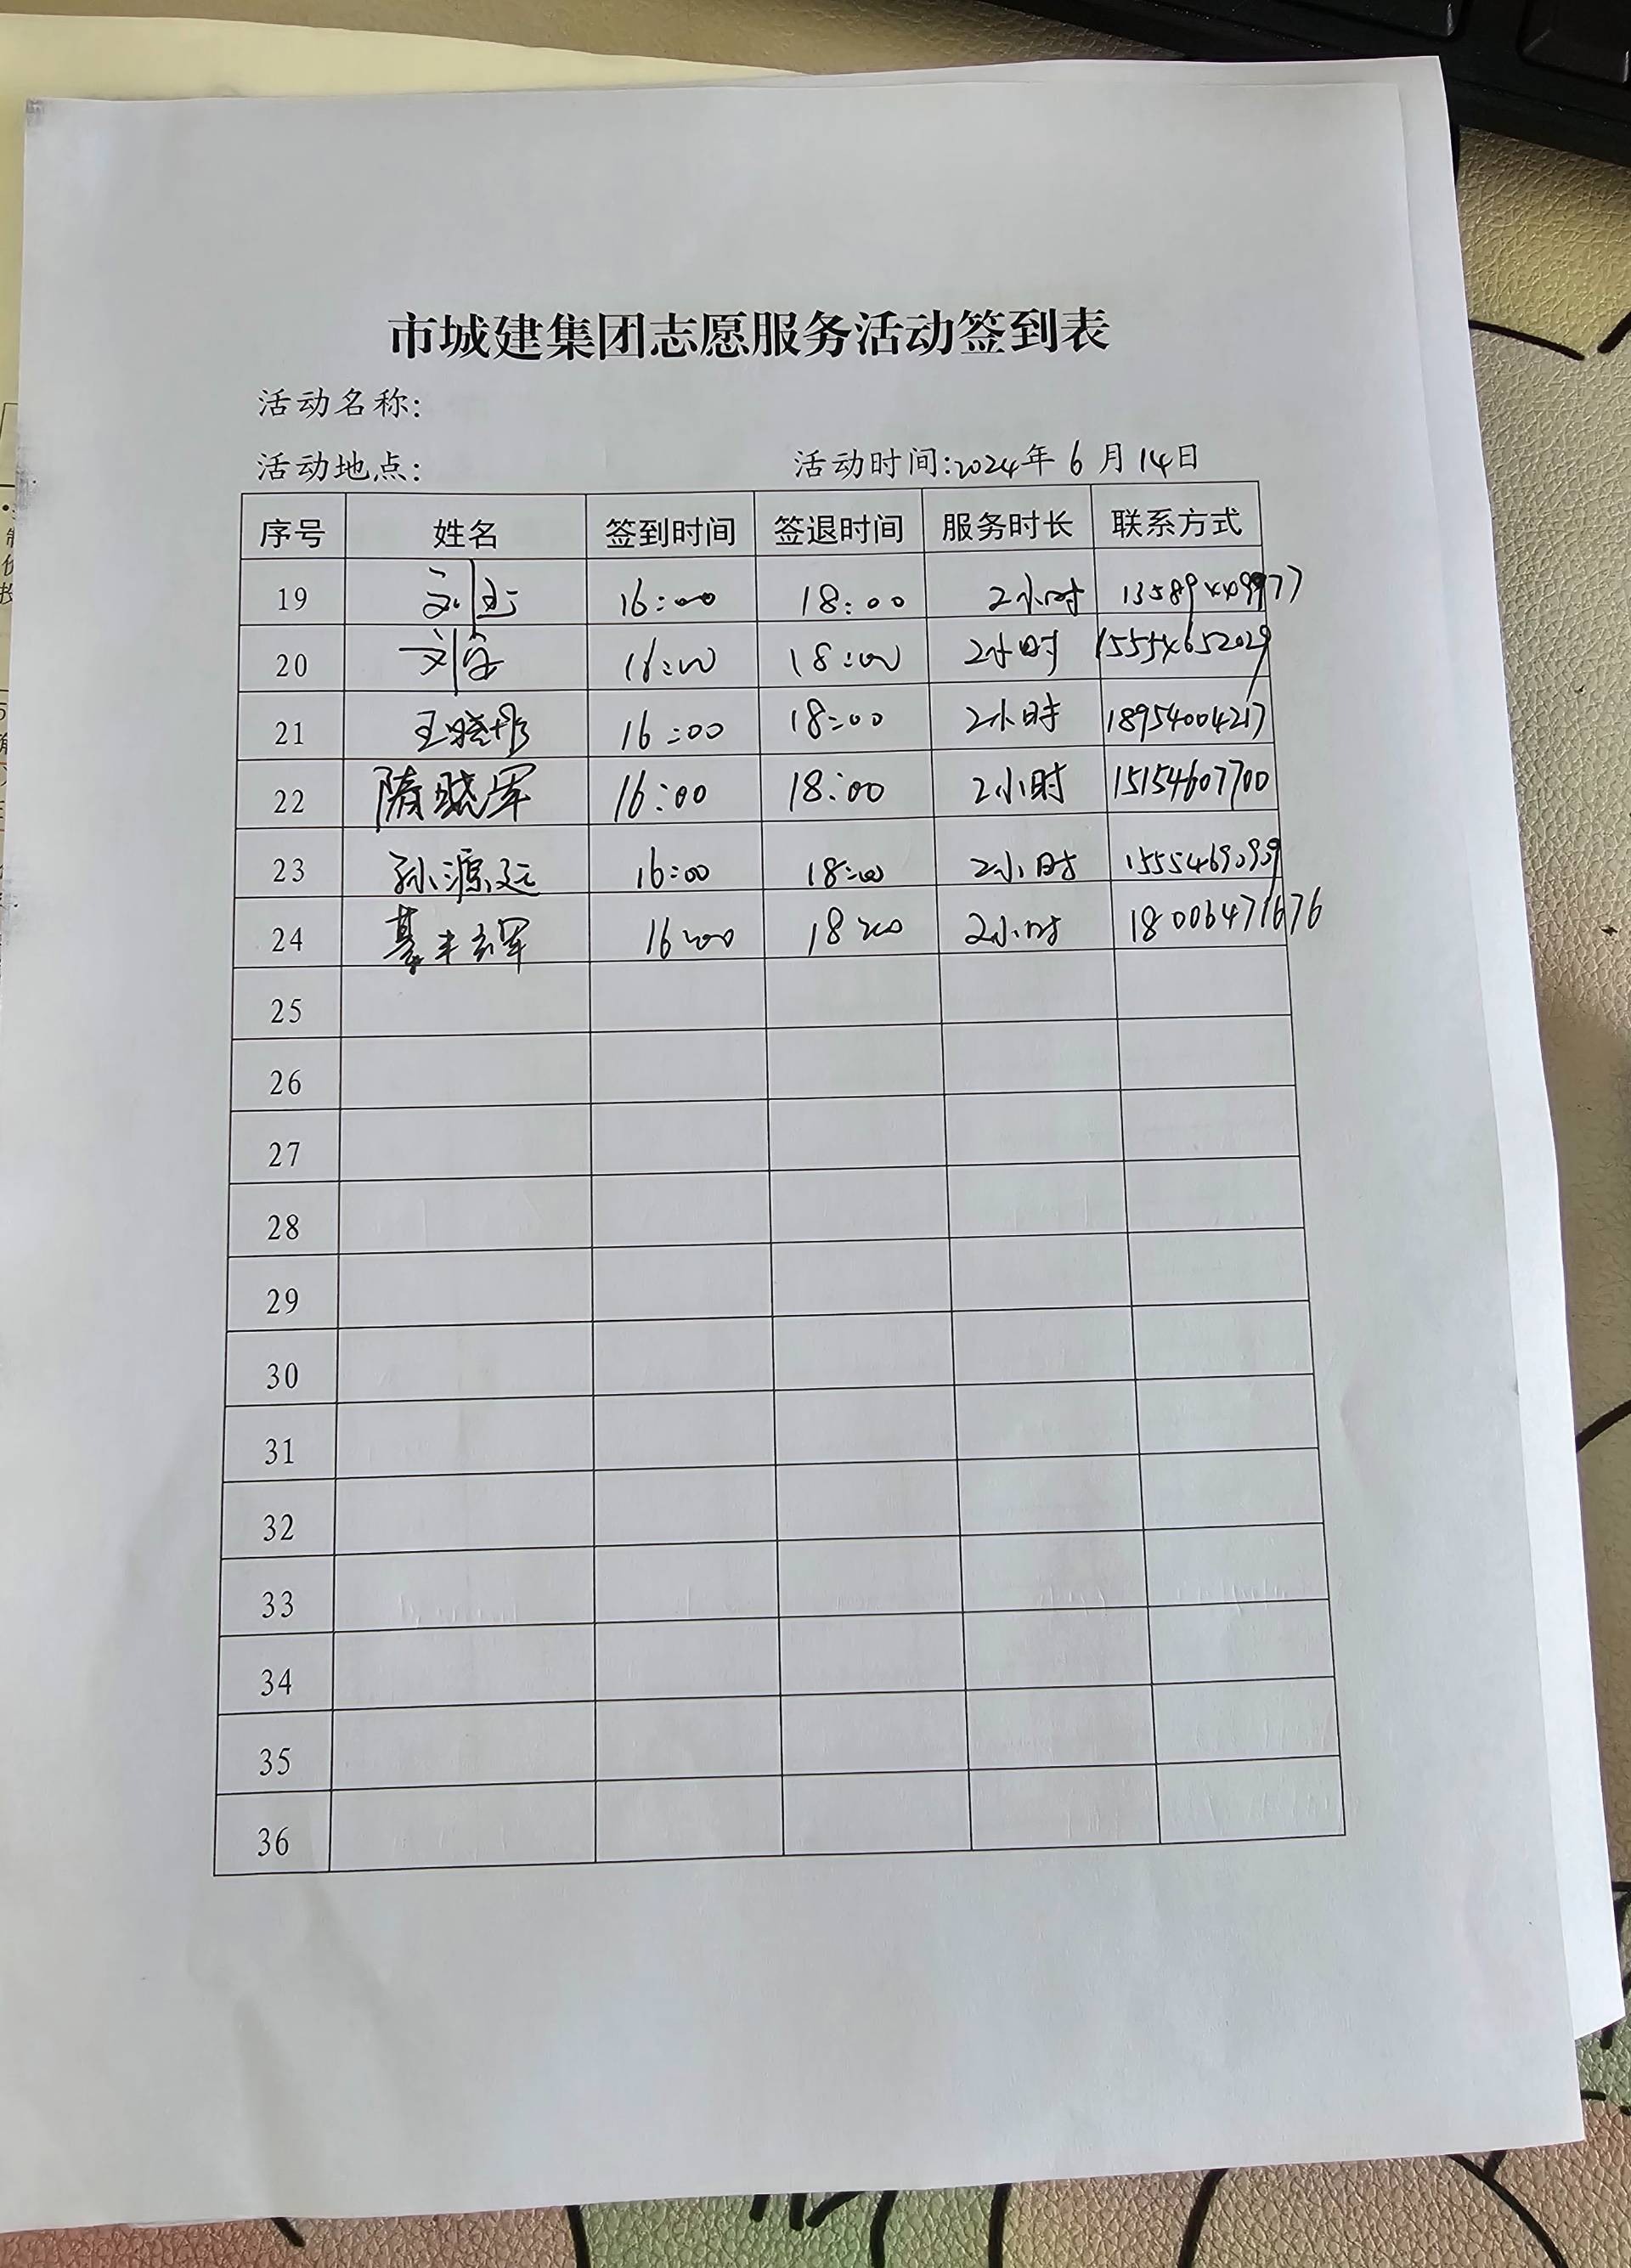 市城建集团志愿服务活动签到表
活动名称:
活动地点: 活动时间:2024年6月14日
序号 姓名 签到时间 签退时间 服务时长 联系方式
19 刘 16:00 18:00 2小时
20 刘 16:00 18:00 2小时 15554652029
21 王晓彤 16:00 18:00 2小时 18954004217
22 隋晓军 16:00 18:00 2小时 15154607700
23 孙源远 16:00 18:00 2小时
24 16:00 18:00 2小时 18006471676
25
26
27
28
29
30
31
32
33
34
35
36